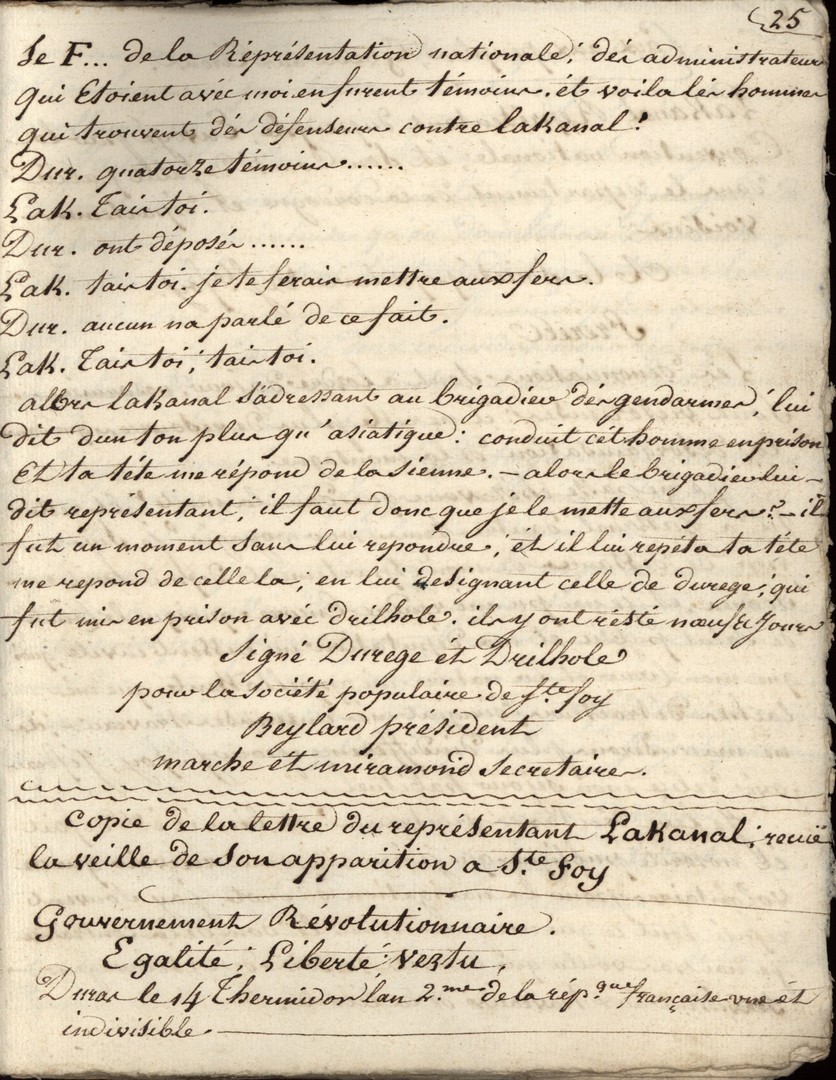 25
Je F... de la Réprésentation nationale; dés administrateurs
qui Etoient avéc moi en furent témoins. ét voila lés hommes
qui trouvent dés défenseurs contre lakanal!
Dur. quatorze témoins......
Lak. Tais toi.
Dur. ont déposés......
Lak. tais toi. je te ferais mettre aux fers.
Dur. aucun na parlé de ce fait.
Lak. Tais toi; tais toi.
alors lakanal s'adressant au brigadier dés gendarmes; lui
dit dun ton plus qu'asiatique: conduit cét homme en prison
Et ta téte me répond de la sienne. - alors le brigadier lui -
dit représentant; il faut donc que je le mette aux fers? - il
fut un moment sans lui repondre; ét il lui repéta ta téte
me repond de celle la; en lui designant celle de durege; qui
fut mis en prison avéc drilhole. ils y ont résté nœufs jours
Signé Durege ét Drilhole
pour la société populaire de Ste. foy
Beylard président
marche ét miramond Secretaires.
Copie de la lettre du représentant Lakanal; recuë
la veille de son apparition a Ste. Foy
Gouvernement Révolutionnaire.
Egalité; Liberté: Vertu.
Duras le 14 Thermidor lan 2.me de la rép.que française une ét
indivisible.